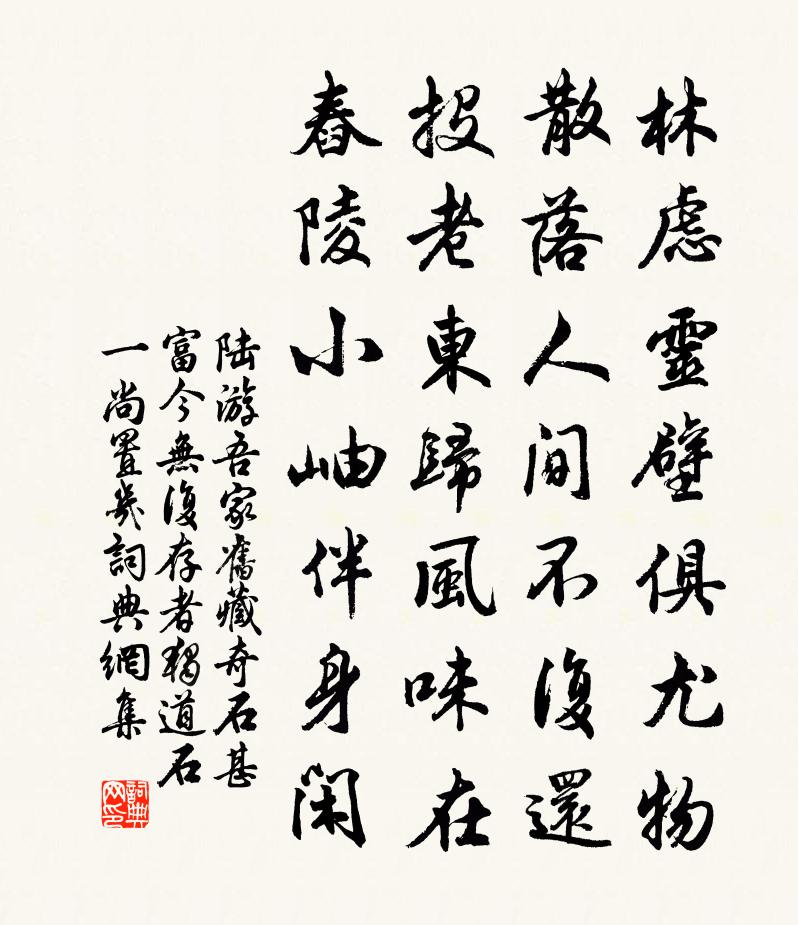 林慮靈壁俱尤物
散落人间不復還
投老東歸風味在
舂陵小岫伴身閑
陸游吾家舊藏奇石甚
富今無復存者獨道石
一尚置几詞典網集
詞典网印